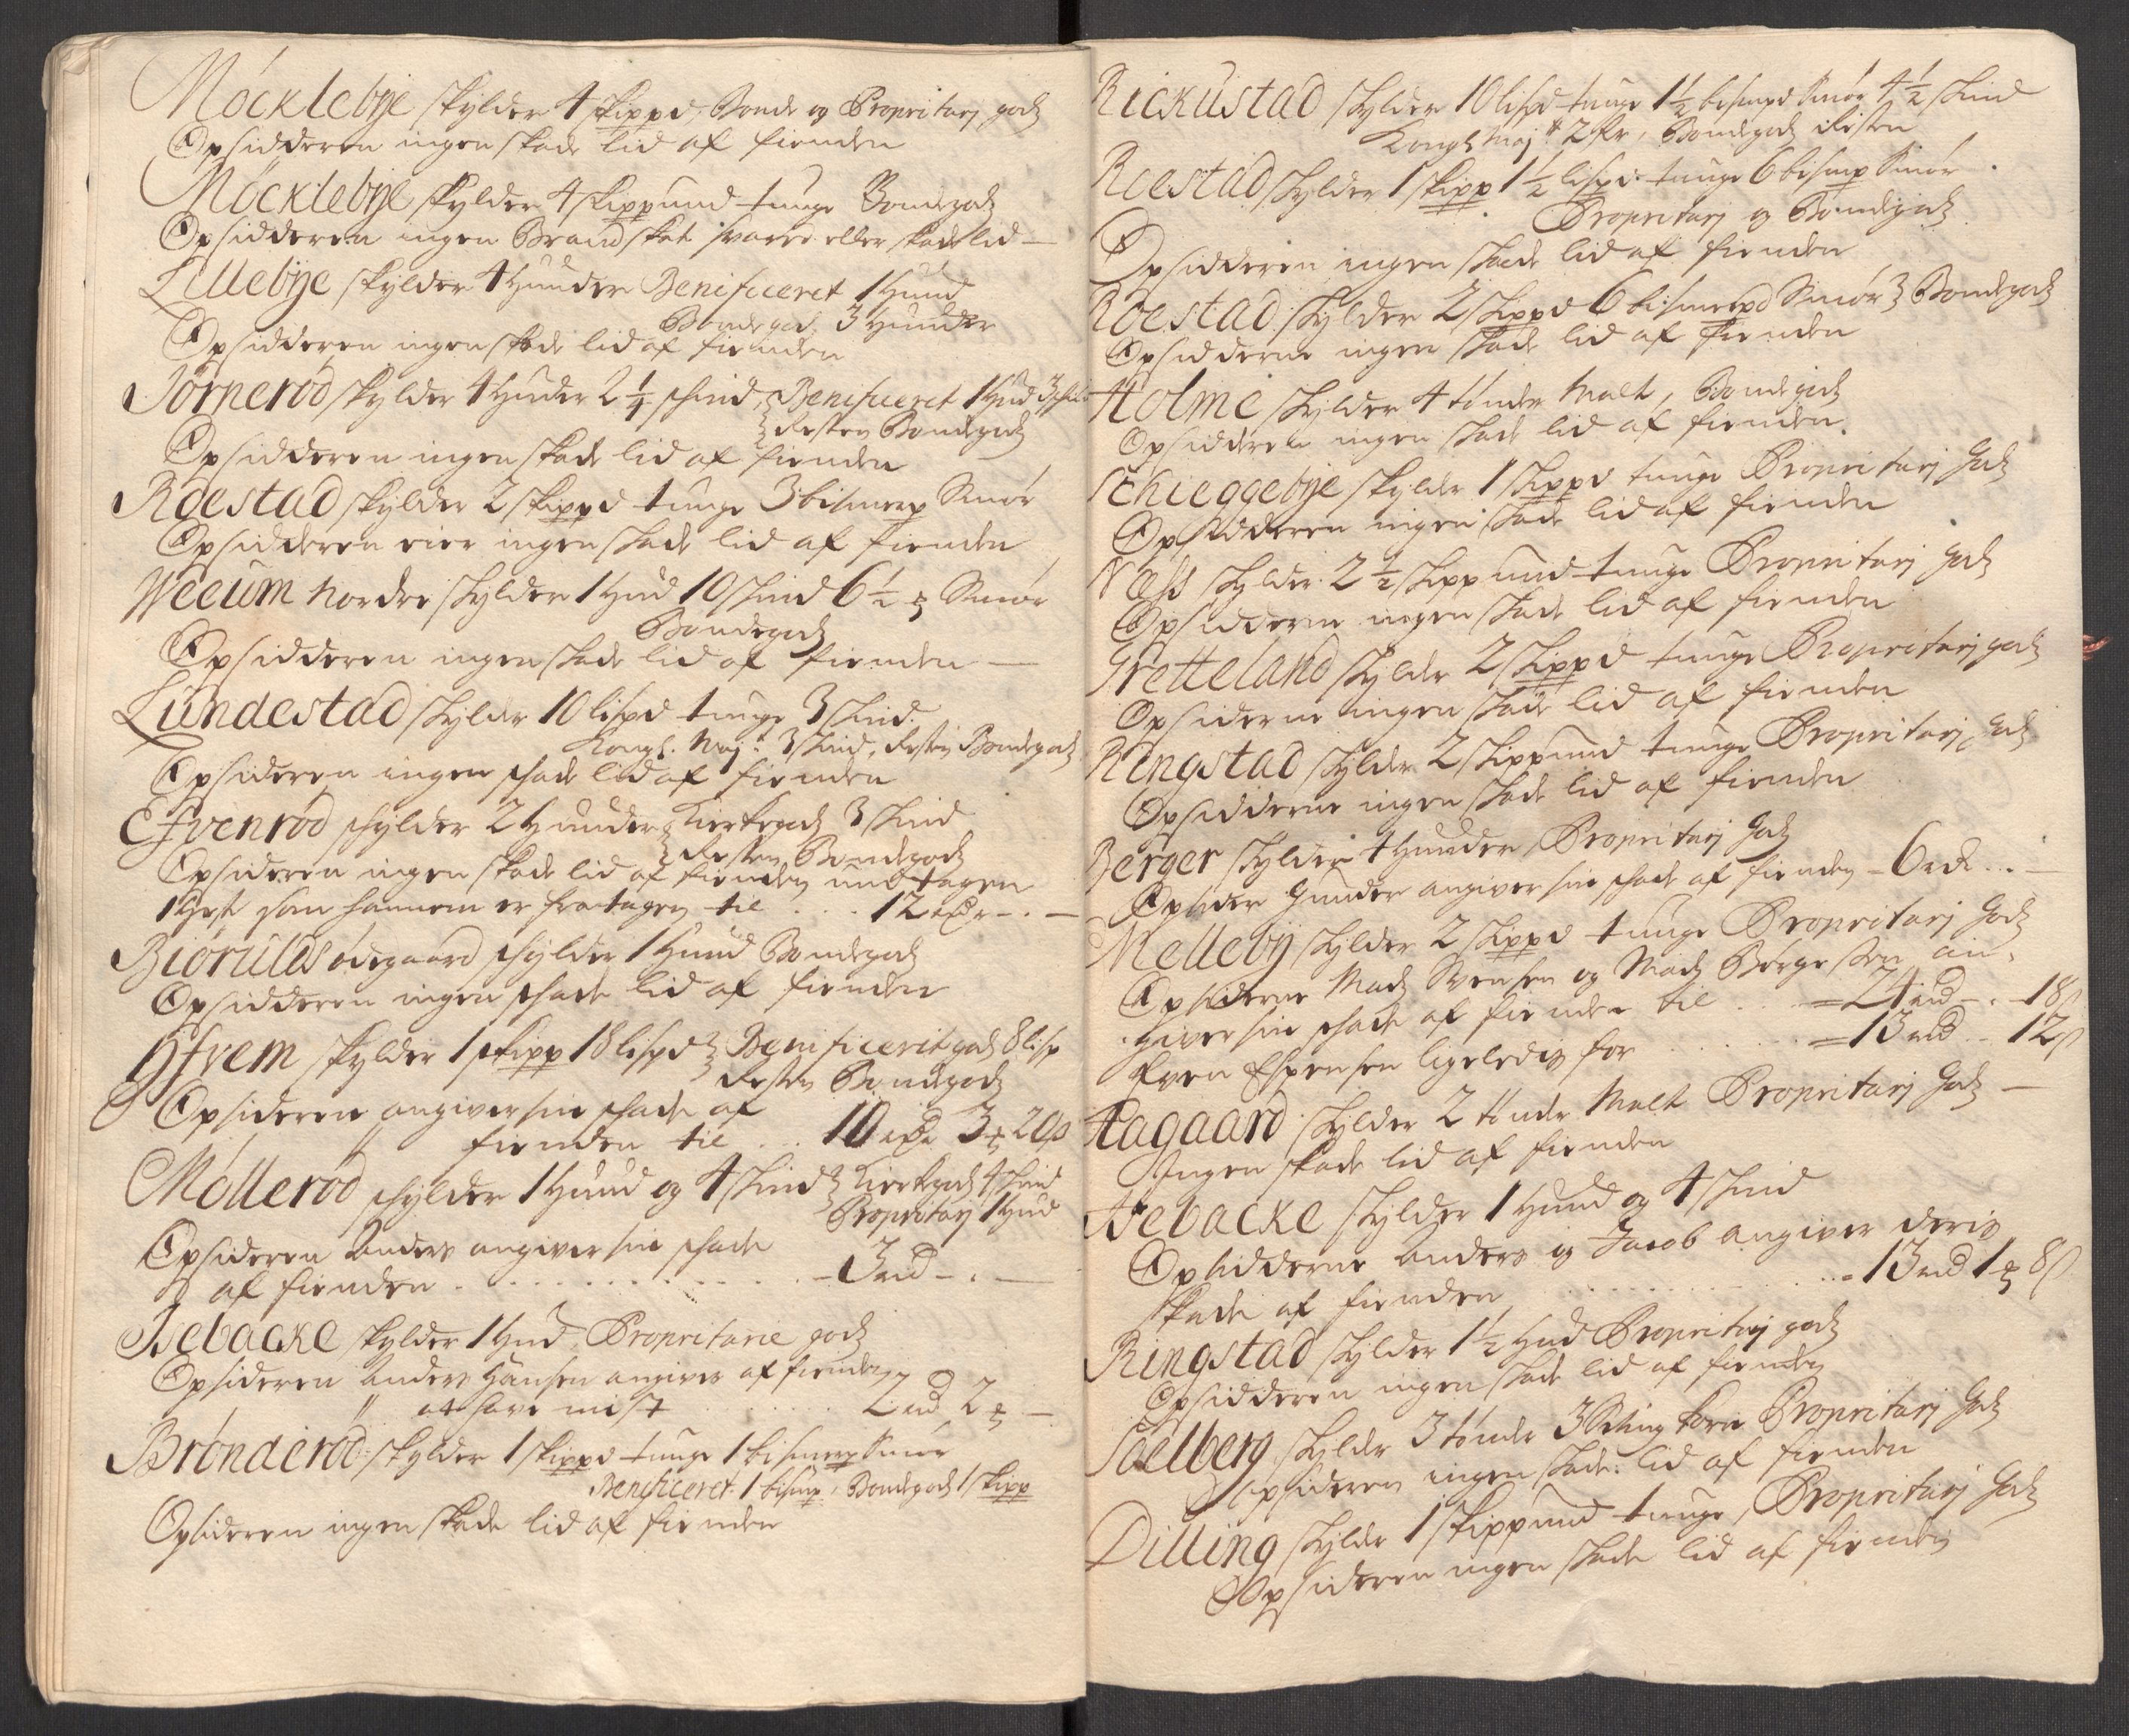 Mócklebÿe skÿlder 4 skippd, Bonde og Propritarj gods
Opsidderen ingen skade lid af fienden
Mócklebÿe skÿlder 4 skippund tunge Bondegods
Opsidderen ingen Brandskat svared eller skade lid
Lillebÿe skÿlder 4 Hunder Benificeret 1 Hund
Bondegods 3 Hunder
Opsidderen ingen skade lid af fienden
Jörneröd skÿlder 4 Huder 2 1/4 skind, Benificeret 1 Hud 3
Resten Bondegods
Opsidderen ingen skade lid af fienden
Röestad skÿlder 2 skippd tunge 3 bismerp Smör
Opsidderen eier ingen skade lid af fienden
Weeüm Nordre skÿlder 1 Hud 10 skind 6 1/2 Smör
Bondegods
Opsidderen ingen skade lid af fienden
Lündestad skÿlder 10 lispd tunge 3 skind.
Kongl. Maj: 3 skind, Resten Bondegods
Opsideren ingen skade lid af fienden
Efvenröd skÿlder 2 Hunder Kirkegods 3 skind
Resten Bondegods
Opsideren ingen skade lid af fienden undtagen
1 Hest som hannem er fratagen til . . . 12 rdr - . -
Biörülds ödegaard skÿlder 1 Hund Bondegods
Opsidderen ingen skade lid af fienden
Hfrem skÿlder 1 skipp 18 lispd Benificerit gods 8 lisp
Resten Bondegods
Opsideren angiver sin skade af
" fienden til . . 10 rd 3 20 s
Mölleröd skÿlder 1 Hund og 4 skind Kirkgods 4 skind
Propritarj 1 Hud
Opsideren Anders angiver sin skade
af fienden . . . . . . . . . . 3 rd - . -
Jsebacke skÿlder 1 Hud Propritarie gods
Opsideren Anders Hansen angiver af fienden
" at have mist . . . . . 2 rd 2 -
Brönderöd skÿlder 1 skippd tunge 1 bismerp Smör
Benificeret 1 bismp, Bondegods 1 skipp
Opsideren ingen skade lid af fienden
Rickustad skÿlder 10 lispd tunge 1 1/2 bismpd Smör 4 1/2 skind
Kongl Maj 2 , Bondegods Resten
Röestad skÿlder 1 skipp 1 1/2 lispd tunge 6 bismp Smör
Propritarj og Bondegods
Opsidderen ingen skade lid af fienden
Röestad skÿlder 2 skippd 6 bismerpd Smör Bondegods
Opsidderne ingen skade lid af fienden
Holme skÿlder 4 tönder Malt, Bondegods
Opsidderen ingen skade lid af fienden.
Schieggebÿe skÿlder 1 skippd tunge Propritarj Gods
Opsidderen ingen skade lid af fienden
Næss skÿlder 2 1/2 skippund tunge Propritarj Gods
Opsidderne ingen skade lid af fienden
Gretteland skÿlder 2 skippd tunge Propritarj gods
Opsiderne ingen skade lid af fienden
Ringstad skÿlder 2 skippund tunge Propritarj Gods
Opsidderne ingen skade lid af fienden
Berger skÿlder 4 Hunder Propritarj Gods
Opsider Gunder angiver sin skade af fienden - 6 rd . . -
Mellebÿ skÿlder 2 skippd tunge Propritarj Gods
Opsiderne Mads Svensen og Mads Börgesen an-
giver sin skade af fienden til . . . 24 rd - . - 18 s
Even Espensen ligeledis for . . . . . 13 rd . . 12 s
Aagaard skÿlder 2 tönde Malt Propritarj Gods
Ingen skade lid af fienden
Jsebacke skÿlder 1 Hund og 4 skind
Opsidderne Anders og Jacob angiver deris
skade af fienden . . . . . . . . . 13 rd 1 8 s
Ringstad skÿlder 1 1/2 Hud Propritarj gods
Opsidderen ingen skade lid af fienden
Söelberg skÿlder 3 tönde 3 Korn Propritarj Gods
Opsideren ingen skade lid af fienden
Dilling skÿlder 1 skippund tunge, Propritarj Gods
Opsideren ingen skade lid af fienden